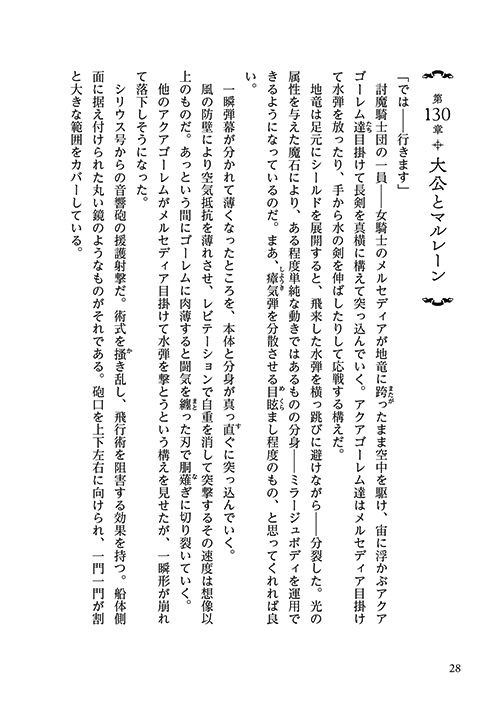 第130章 ✢ 大公とマルレーン
「では――行きます」
討魔騎士団の一員――女騎士のメルセディアが地竜に跨ったまま空中を駆け、宙に浮かぶアクア
ゴーレム達目掛けて長剣を真横に構えて突っ込んでいく。アクアゴーレム達はメルセディア目掛け
て水弾を放ったり、手から水の剣を伸ばしたりして応戦する構えだ。
地竜は足元にシールドを展開すると、飛来した水弾を横っ跳びに避けながら――分裂した。光の
属性を与えた魔石により、ある程度単純な動きではあるものの分身――ミラージュボディを運用で
きるようになっているのだ。まあ、瘴気弾を分散させる目眩まし程度のもの、と思ってくれれば良
い。
一瞬弾幕が分かれて薄くなったところを、本体と分身が真っ直ぐに突っ込んでいく。
風の防壁により空気抵抗を薄れさせ、レビテーションで自重を消して突撃するその速度は想像以
上のものだ。あっという間にゴーレムに肉薄すると闘気を纏った刃で胴薙ぎに切り裂いていく。
他のアクアゴーレムがメルセディア目掛けて水弾を撃とうという構えを見せたが、一瞬形が崩れ
て落下しそうになった。
シリウス号からの音響砲の援護射撃だ。術式を掻き乱し、飛行術を阻害する効果を持つ。船体側
面に据え付けられた丸い鏡のようなものがそれである。砲口を上下左右に向けられ、一門一門が割
と大きな範囲をカバーしている。
28